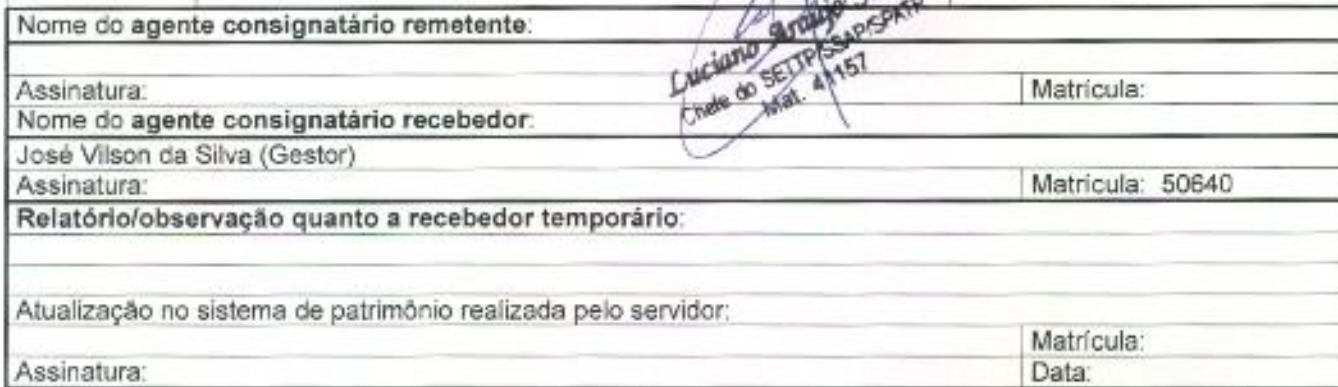 Nome do agente consignatário remetente:
Luciano Araújo
Chefe do SETTP/SSAP/SPATR
Mat. 41157
Assinatura:
Matrícula:
Nome do agente consignatário recebedor:
José Vilson da Silva (Gestor)
Assinatura:
Matrícula: 50640
Relatório/observação quanto a recebedor temporário:
Atualização no sistema de patrimônio realizada pelo servidor:
Matrícula:
Assinatura:
Data: